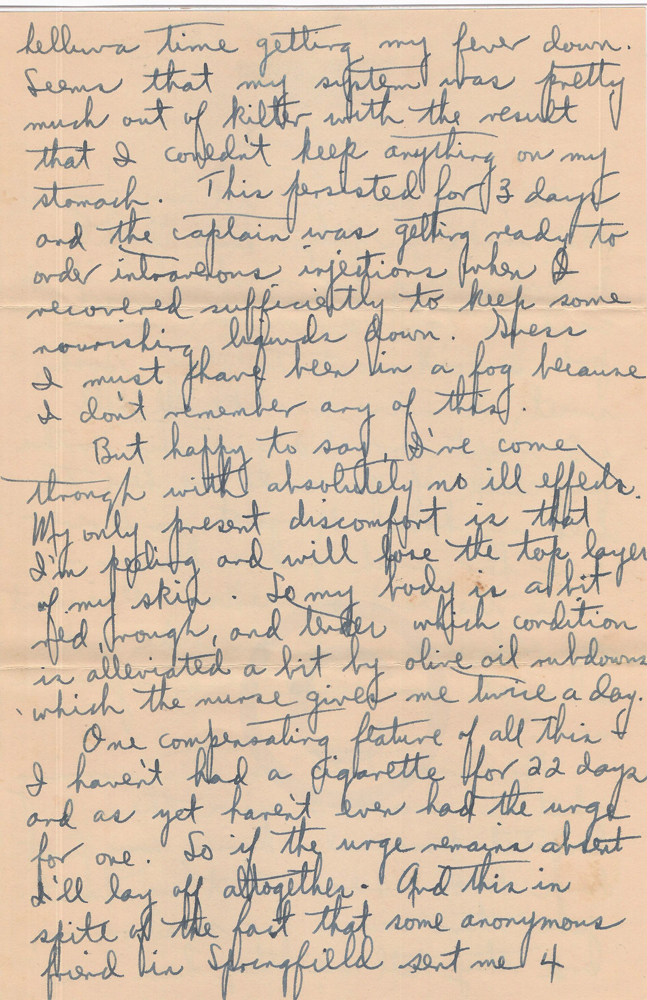 helluva time getting my fever down.
Seems that my system was pretty
much out of kilter with the result
that I couldn't keep anything on my
stomach. This persisted for 3 days
and the captain was getting ready to
order intravenous injections when I
recovered sufficiently to keep some
nourishing liquids down. Guess
I must have been in a fog because
I don't remember any of this.
But happy to say, I've come
through with absolutely no ill effects.
My only present discomfort is that
I'm peeling and will lose the top layer
of my skin. So my body is a bit
red, rough, and tender which condition
is alleviated a bit by olive oil rubdowns
which the nurse gives me twice a day.
One compensating feature of all this -
I haven't had a cigarette for 22 days
and as yet haven't even had the urge
for one. So if the urge remains absent
I'll lay off altogether. And this in
spite of the fact that some anonymous
friend in Springfield sent me 4